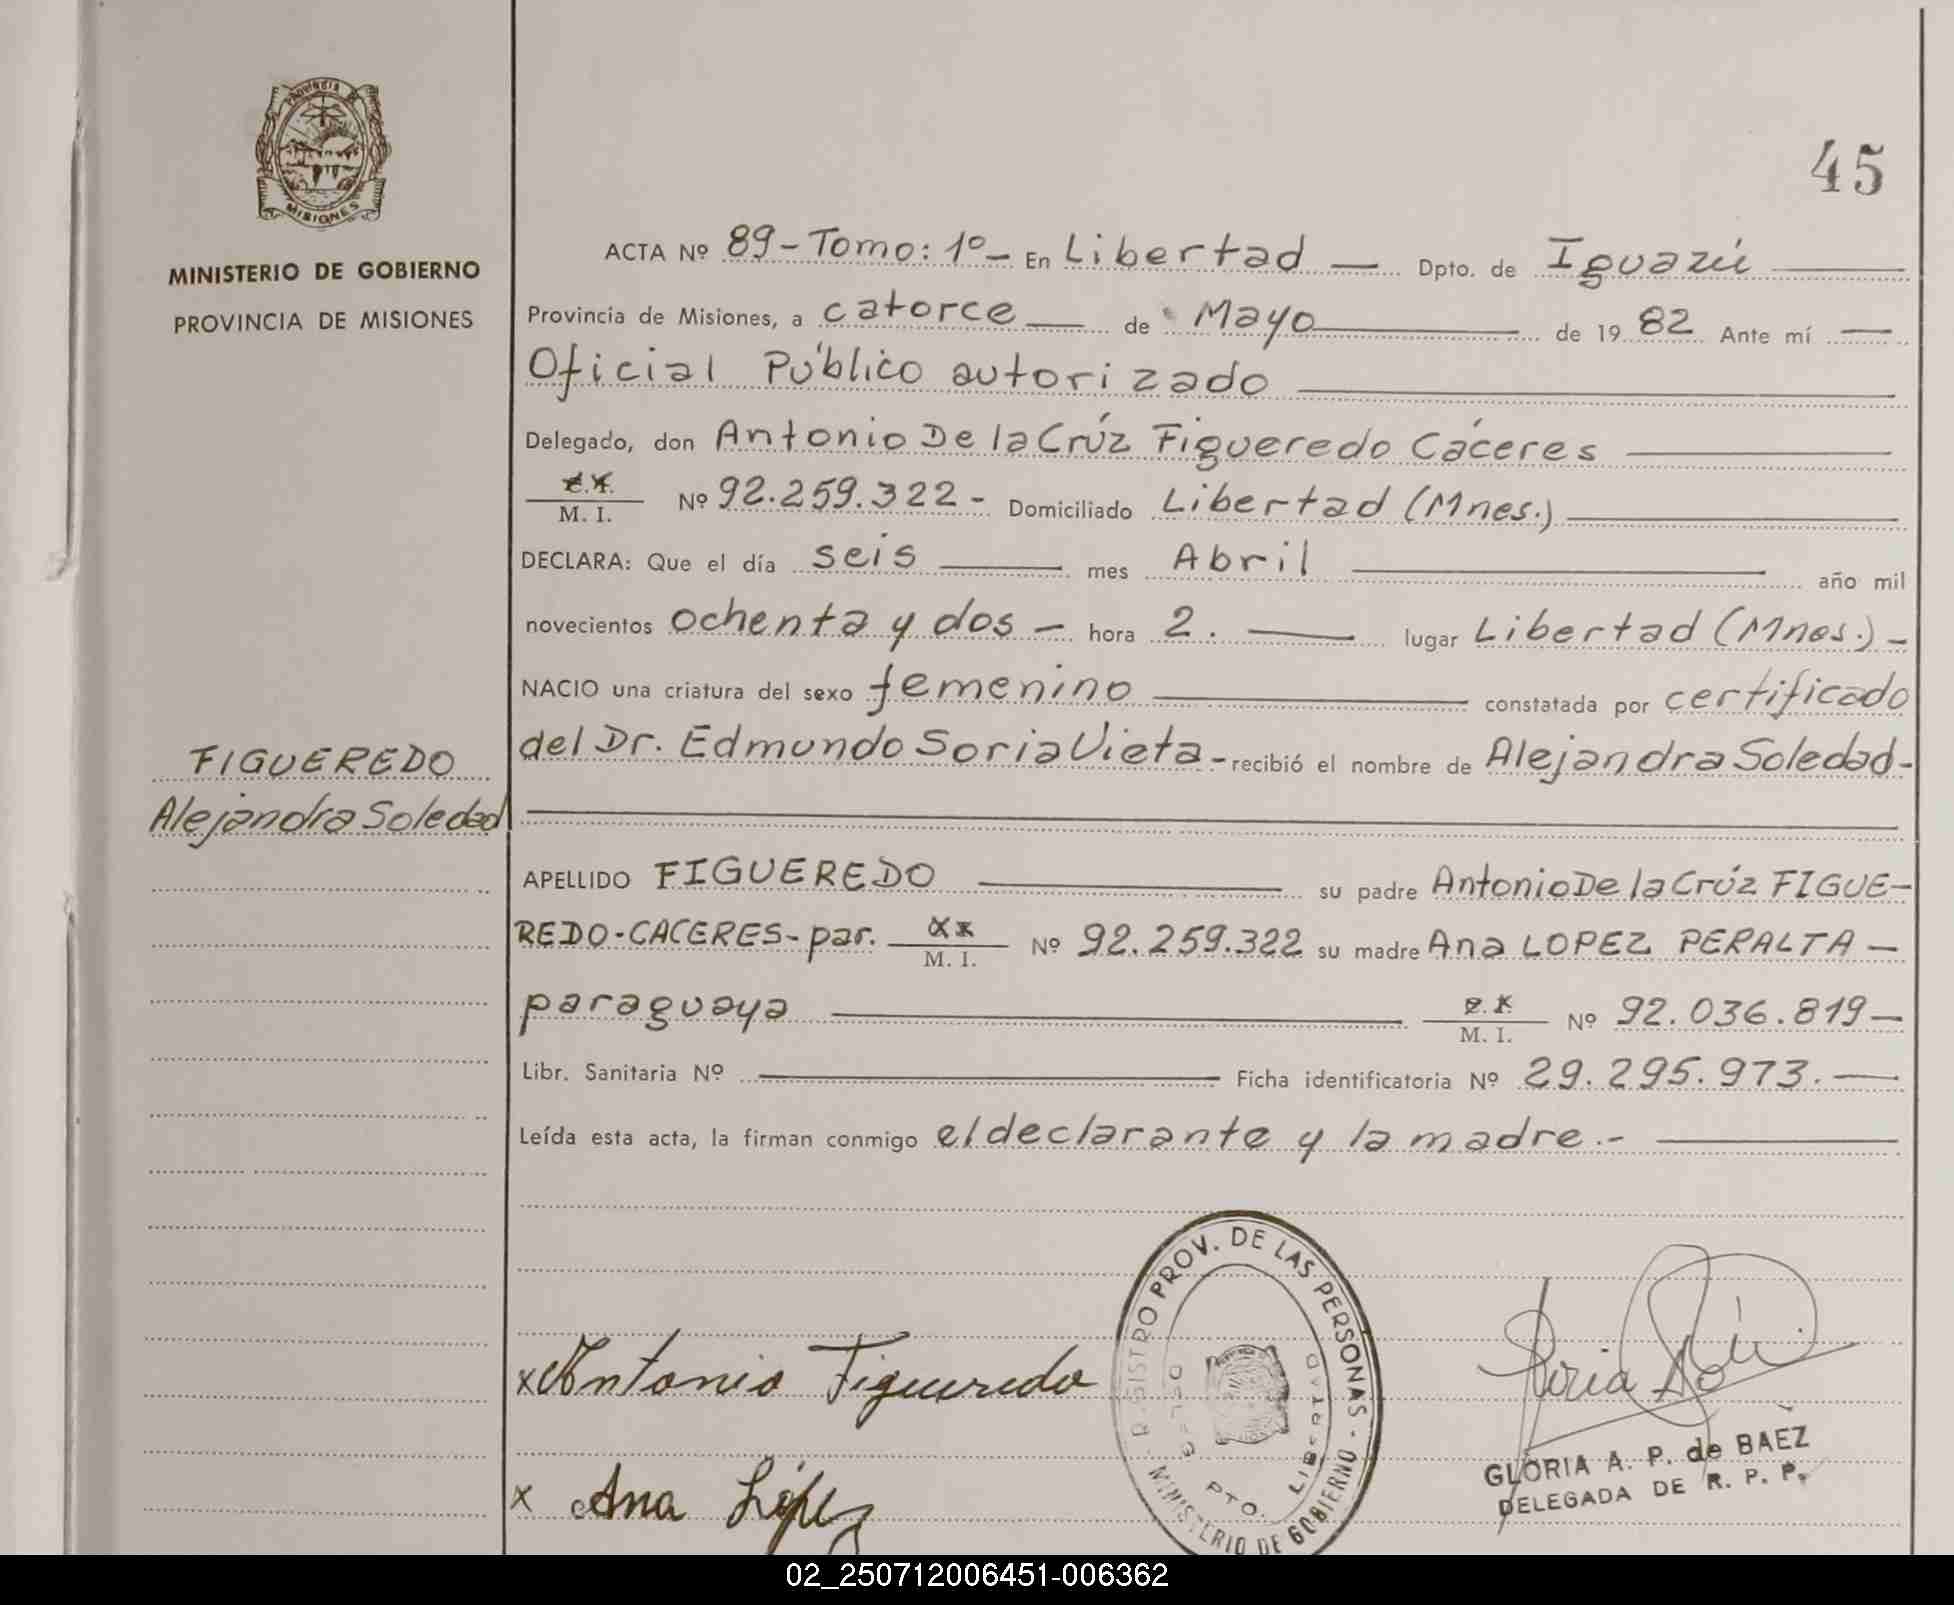 PROVINCIA DE
MISIONES
MINISTERIO DE GOBIERNO
PROVINCIA DE MISIONES
FIGUEREDO
Alejandra Soledad
45
ACTA Nº 89 - Tomo: 1º - En Libertad — Dpto. de Iguazú
Provincia de Misiones, a catorce — de Mayo — de 19 82 Ante mí —
Oficial Público autorizado
Delegado, don Antonio De la Crúz Figueredo Cáceres
C.I. / M. I. Nº 92.259.322 - Domiciliado Libertad (Mnes.)
DECLARA: Que el día seis — mes Abril — año mil
novecientos ochenta y dos — hora 2. — lugar Libertad (Mnes.) -
NACIO una criatura del sexo femenino — constatada por certificado
del Dr. Edmundo Soria Vieta - recibió el nombre de Alejandra Soledad -
APELLIDO FIGUEREDO — su padre Antonio De la Crúz FIGUE-
REDO - CACERES - par. M. I. Nº 92.259.322 su madre Ana LOPEZ PERALTA —
paraguaya — M. I. Nº 92.036.819 —
Libr. Sanitaria Nº — Ficha identificatoria Nº 29.295.973. —
Leída esta acta, la firman conmigo el declarante y la madre. -
x Antonio Figueredo
x Ana López
REGISTRO PROV. DE LAS PERSONAS - MINISTERIO DE GOBIERNO
DELEG. LIBERTAD
PTO.
GLORIA A. P. de BAEZ
DELEGADA DE R. P. P.
02_250712006451-006362